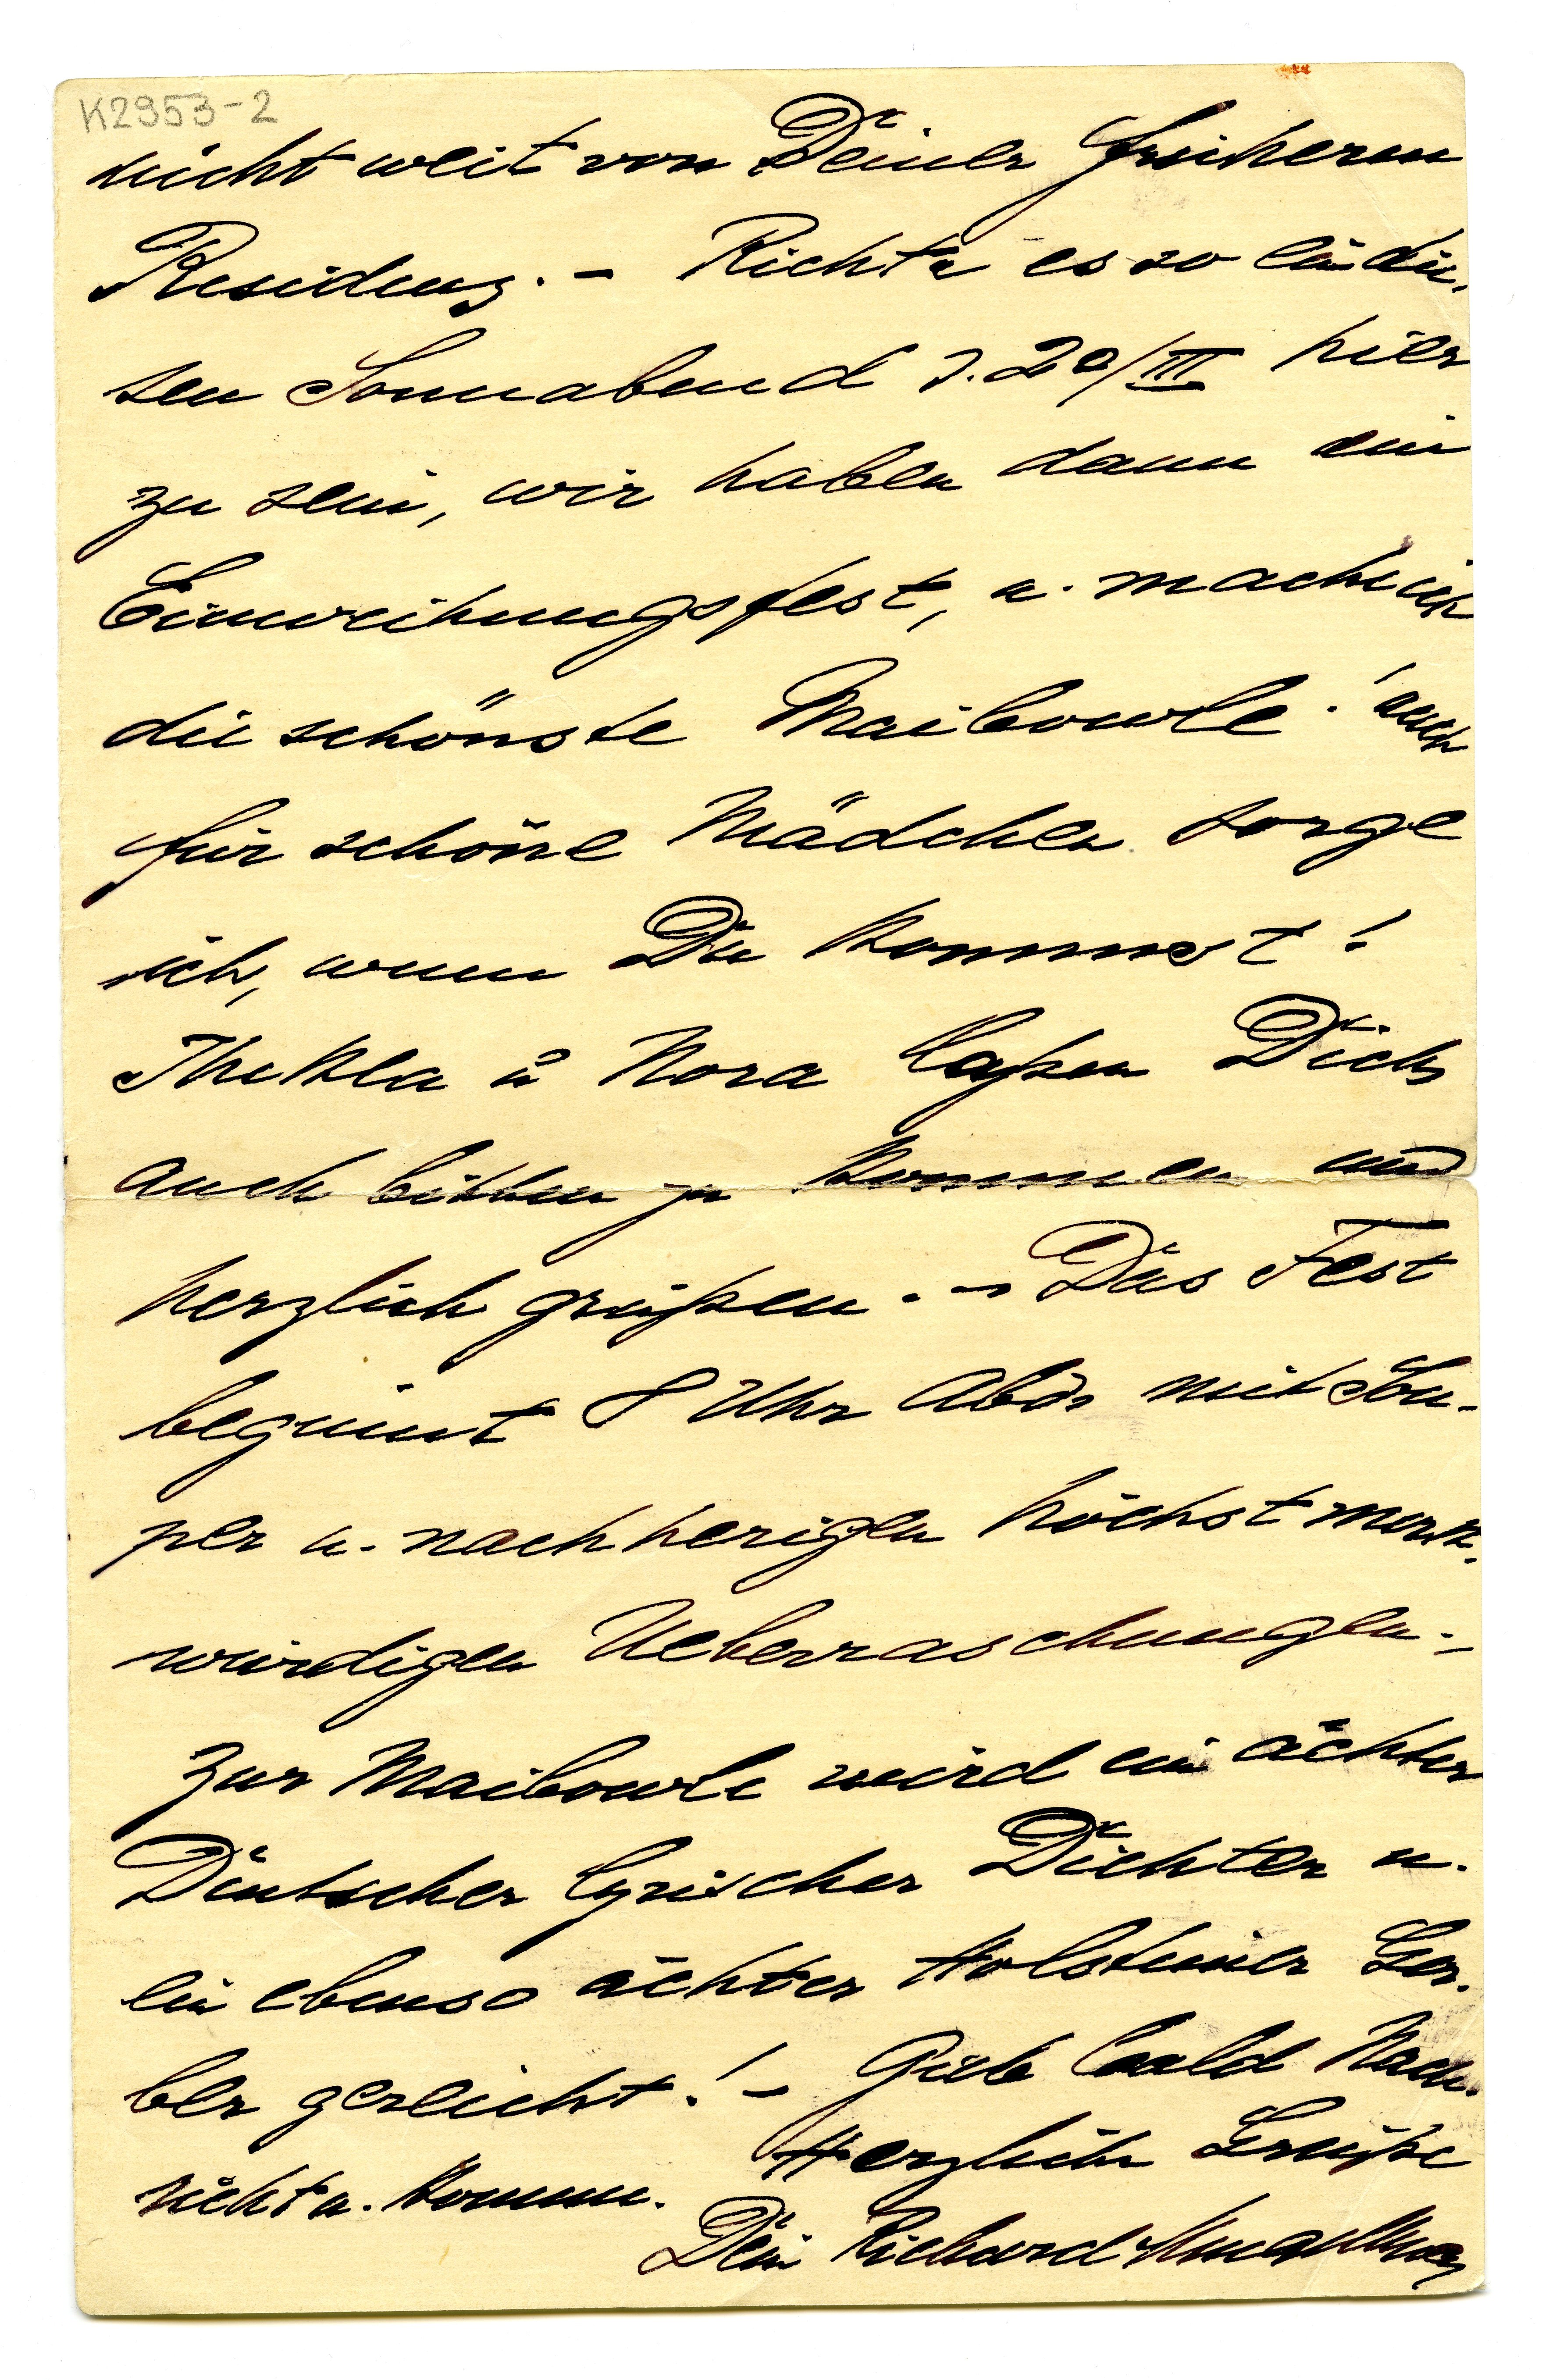 K2953-2
nicht weit von Deiner früheren
Residenz. – Richte es so ein die-
sen Sonnabend d. 20/III hier
zu sein, wir haben dann ein
Einweihungsfest, u. mache ich
die schönste Maibowle! auch
für schöne Mädchen sorge
ich, wenn Du kommst!
Thekla u Nora laßen Dich
auch bitten zu kommen und
herzlich grüßen. – Das Fest
beginnt 8 Uhr Abds mit Sou-
per u. nachherigen höchst merk-
würdigen Ueberraschungen. –
Zur Maibowle wird ein ächter
Deutscher lyrischer Dichter u.
ein ebenso ächter Holsteiner Ger-
ber gereicht! – Gieb bald Nach-
richt u. komme.
Herzliche Grüße
Dein Richard